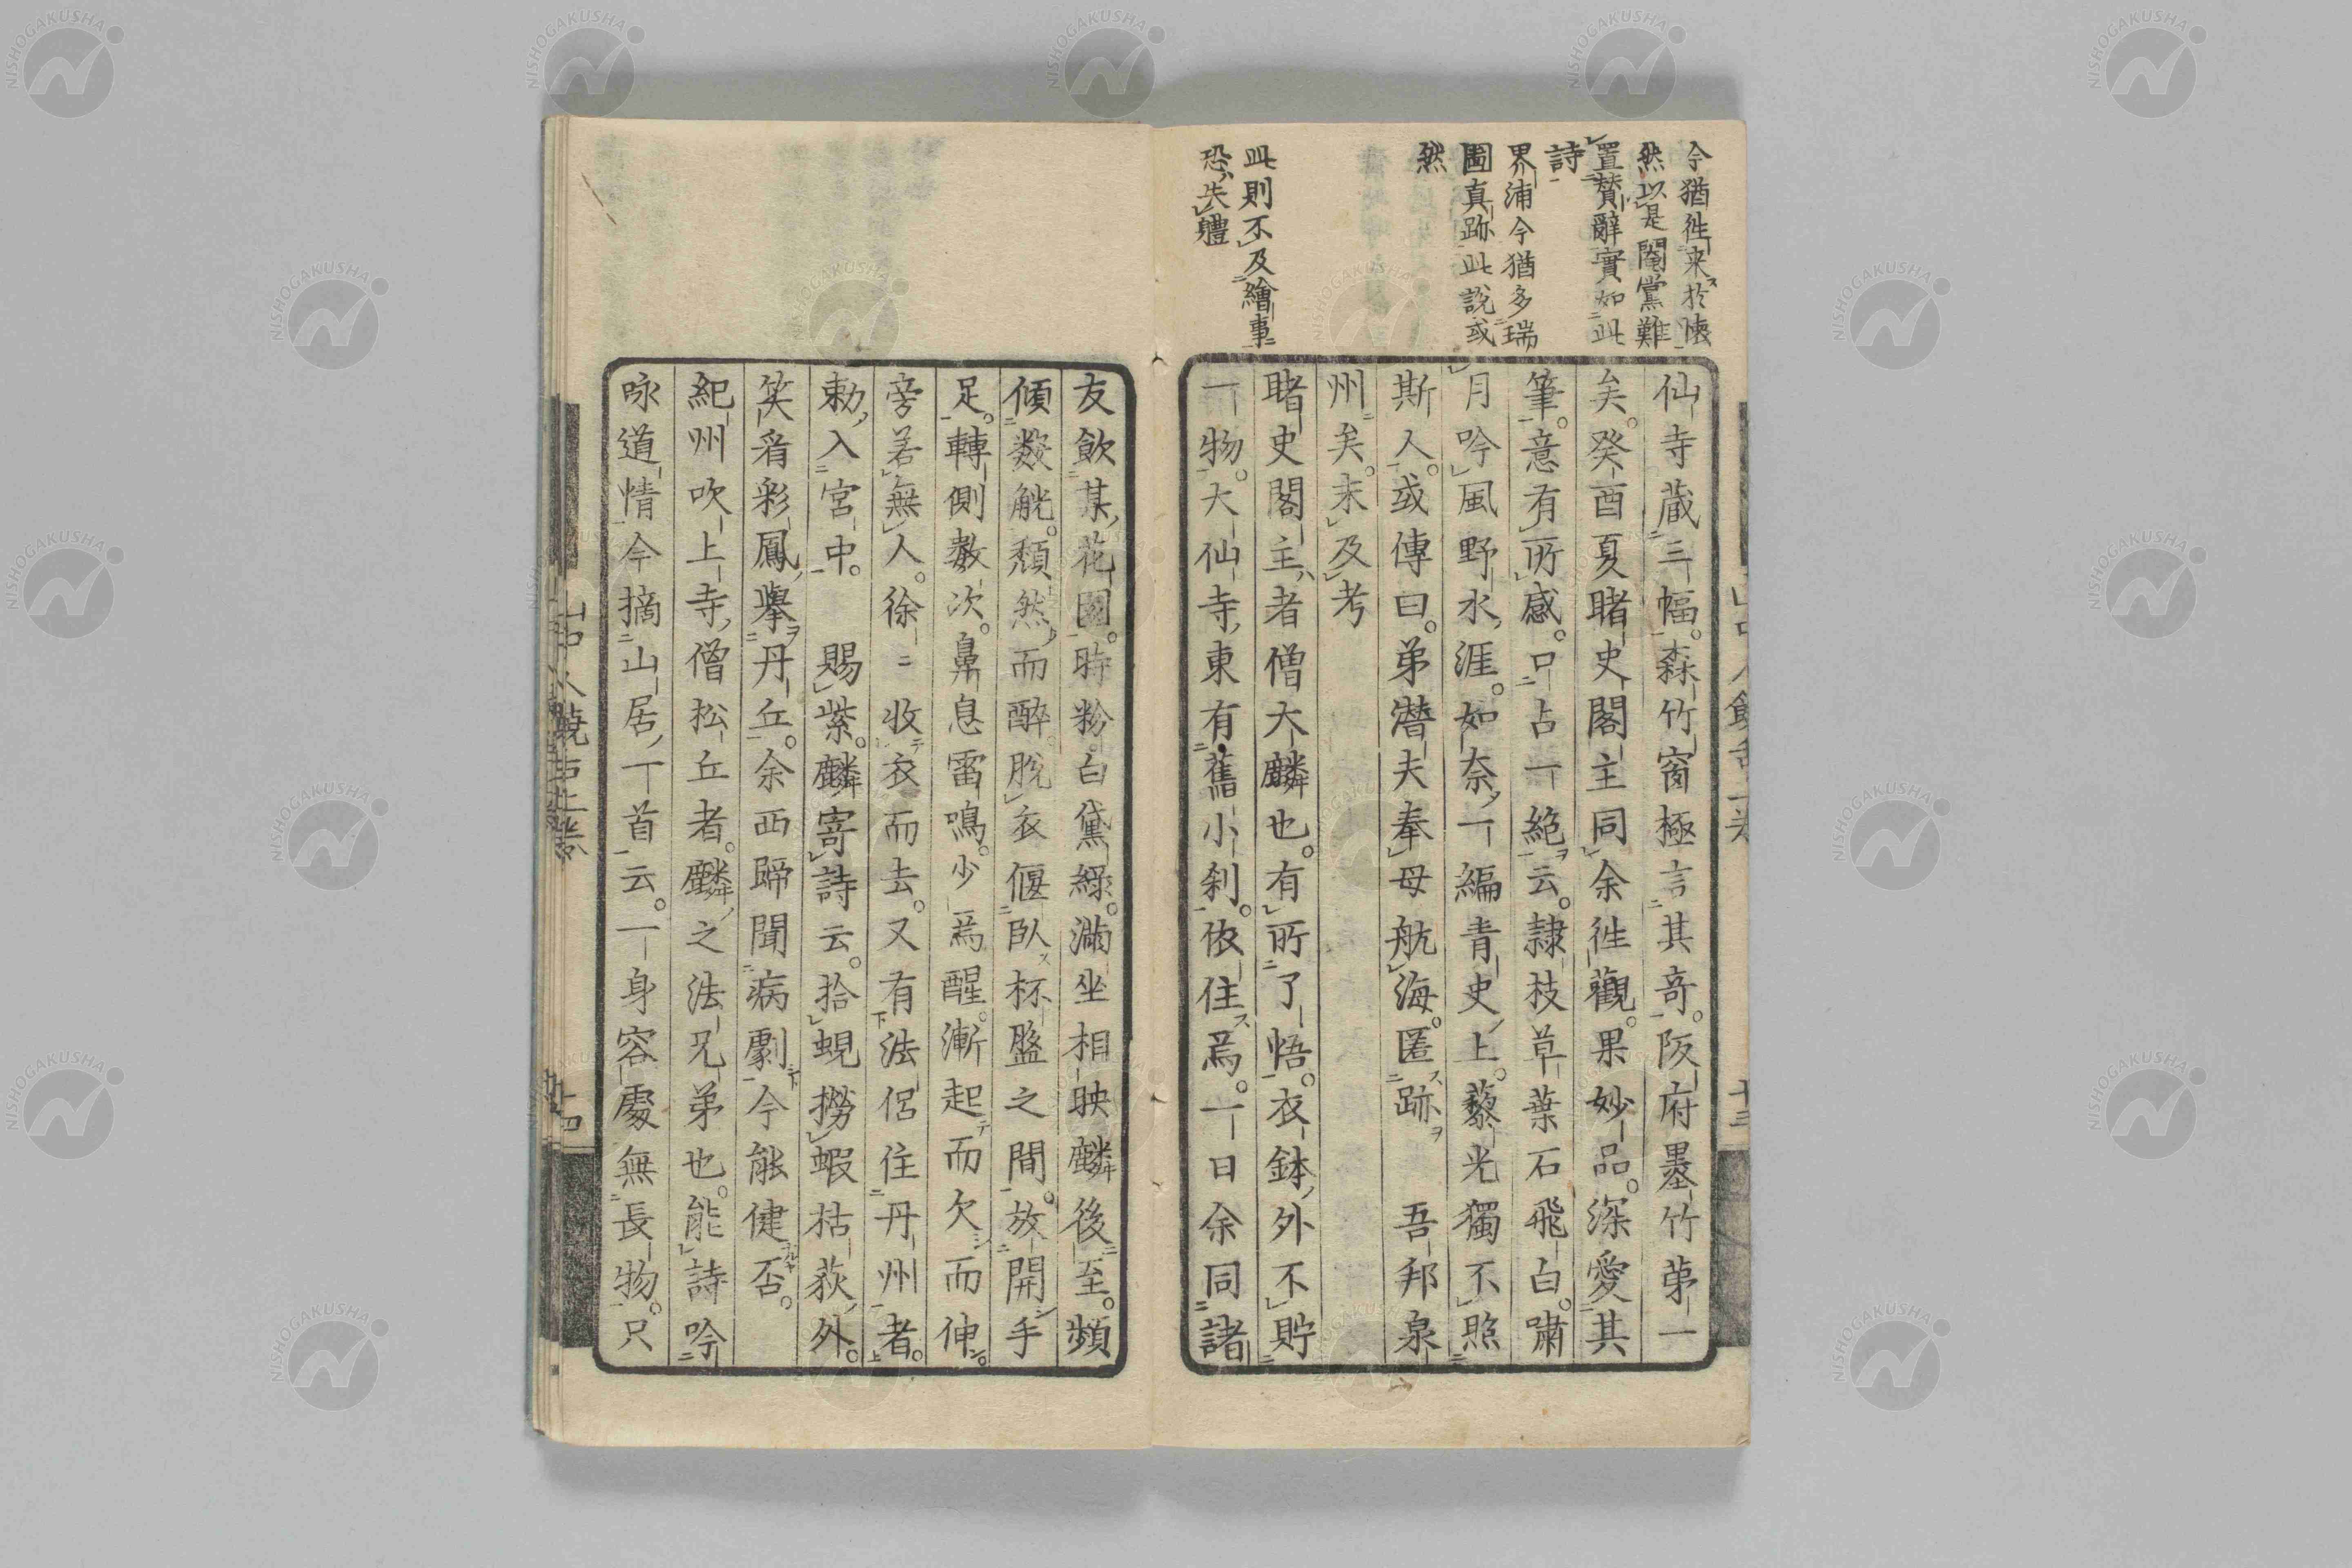 今猶徃来於懐
然以是闇黨難
置賛辭實如此
詩
界浦今猶多瑞
圖真跡此説或
然
此則不及繪事
恐失體
仙寺蔵三幅。森竹窗極言其竒。阪府墨竹苐一
矣。癸酉夏睹史閣主同余徃觀。果妙品。深愛其
筆。意有所感。口占一絶云。隷枝草葉石飛白。嘯
月吟風野水涯。如奈一編青史上。藜光獨不照
斯人。或傳曰。弟潜夫奉母航海。匿跡 吾邦泉
州矣。未及考
睹史閣主者僧大麟也。有所了悟。衣鉢外不貯
一物。大仙寺東有舊小刹。依住焉。一日余同諸
友飲某花園。時粉白黛綠。滿坐相映麟後至。頻
傾数觥。頹然而醉脱衣偃臥杯盤之間。放開手
足。轉側数次。鼻息雷鳴。少焉醒。漸起而欠而伸。
旁若無人。徐〻收衣而去。又有法侶住丹州者。
勅入宮中。 賜紫。麟寄詩云。拾蜆撈蝦枯荻外。
笑看彩鳳擧丹丘。余西歸聞病劇今能健否。
紀州吹上寺僧松丘者。麟之法兄弟也。能詩吟
咏道情今摘山居一首云。一身容處無長物。只
十三
山中人饒舌上巻
十四
NISHOGAKUSHA